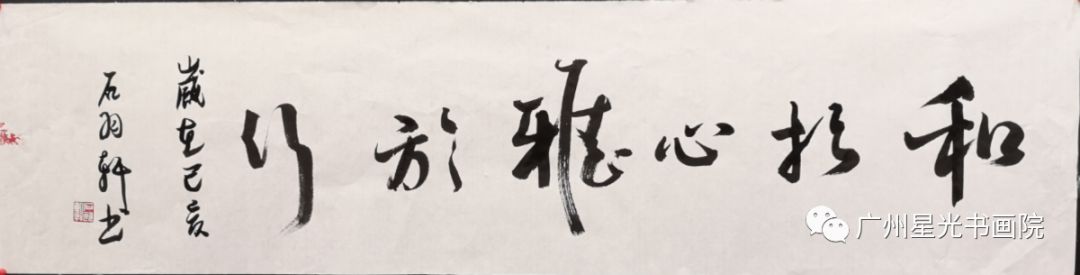 和於心雅於行
歲在己亥
石羽軒书
广州星光书画院